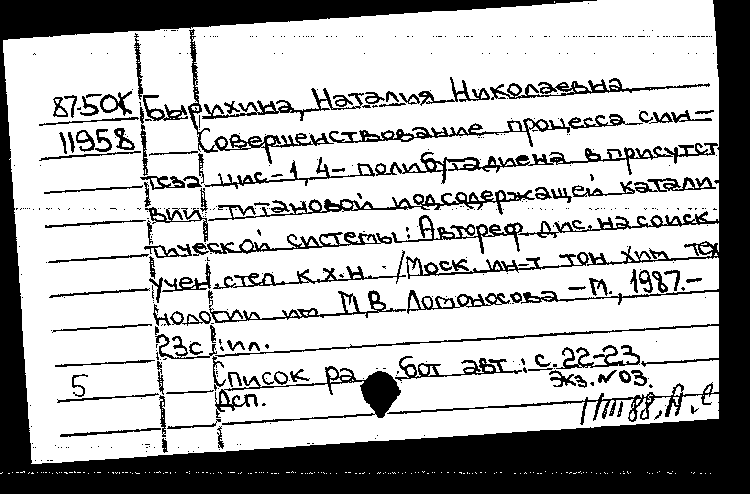 87-5ОК Бырихина, Наталия Николаевна.
11958 Совершенствование процесса син=
теза цис-1,4-полибутадиена в присутст
вии титановой иодсодержащей катали-
тической системы: Автореф дис. на соиск.
учен. степ. к.х.н. /Моск. ин-т тон. хим тех
нологии им. М.В. Ломоносова - М., 1987.-
23с :ил.
5 Список ра бот авт.: с. 22-23.
Дсп. Экз. №03.